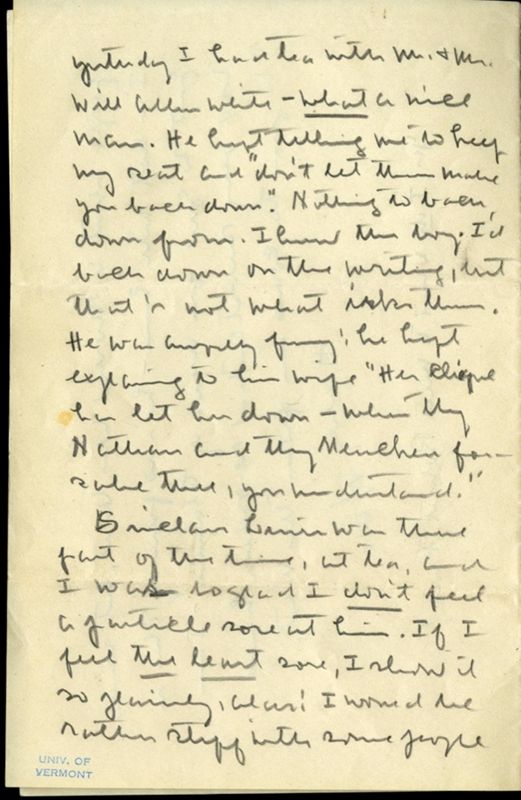 yesterday I had tea with Mr. & Mrs.
Will Allen White – what a nice
man. He kept telling me to keep
my seat and "don't let them make
you back down". Nothing to back
down from. I know the boy. I'd
back down on the writing, but
that's not what irks them.
He was awfully funny; he kept
explaing to his wife "Her clique
has let her down – when thy
Nathan and thy Mencken for-
sake thee, you understand."
Sinclair Lewis was there
part of the time, at tea, and
I was so glad I don't feel
a particle sore at him. If I
feel the least sore, I show it
so plainly, alas! I would be
rather stiff with some people
UNIV. OF
VERMONT